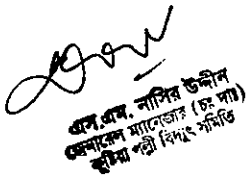 এস.এম. নাসির উদ্দীন
জেনারেল ম্যানেজার (চঃ দাঃ)
কুষ্টিয়া পল্লী বিদ্যুৎ সমিতি